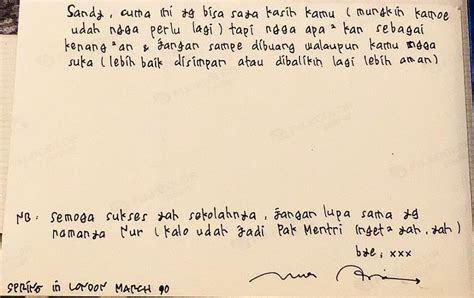 Sandy, cuma ini yg bisa saya kasih kamu (mungkin kamoe
udah ngga perlu lagi) tapi ngga apa² kan sebagai
kenang²an & jangan sampe dibuang walaupun kamu ngga
suka (lebih baik disimpan atau dibalikin lagi lebih aman)
NB: Semoga sukses yah sekolahnya, jangan lupa sama yg
namanya Nur (kalo udah jadi Pak Mentri inget² yah, yah)
bye, xxx
SPRING in LONDON MARCH 90